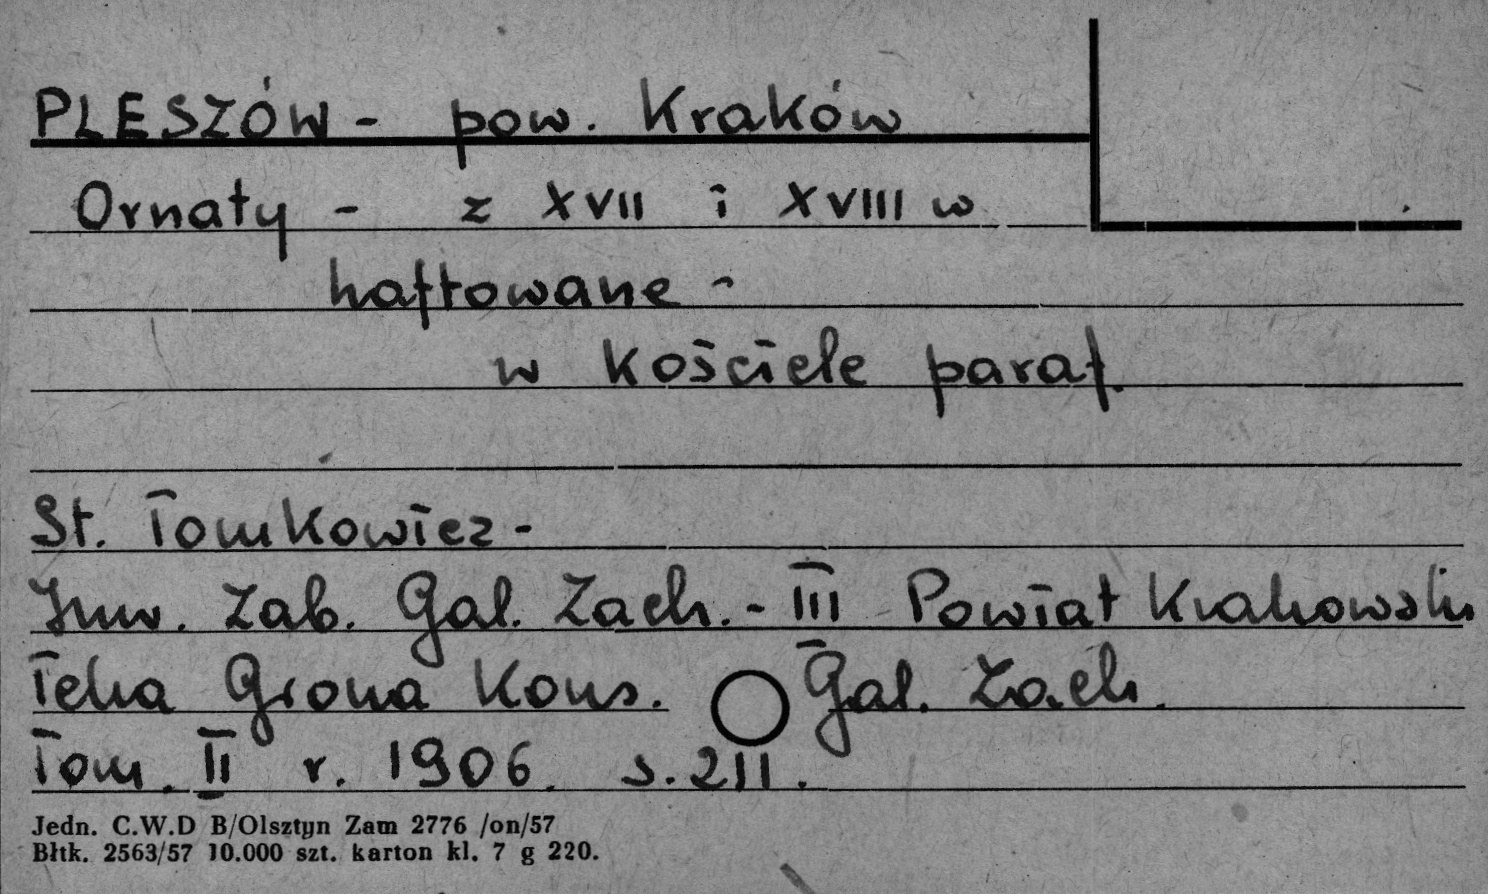 PLESZÓW - pow. Kraków
Ornaty - z XVII i XVIII w
haftowane -
w kościele paraf.
St. Tomkowicz -
Inw. Zab. Gal. Zach. - III Powiat Krakowski
Teka Grona Kons. Gal. Zach.
Tom. II r. 1906. s. 211.
Jedn. C.W.D B/Olsztyn Zam 2776 /on/57
Błtk. 2563/57 10.000 szt. karton kl. 7 g 220.